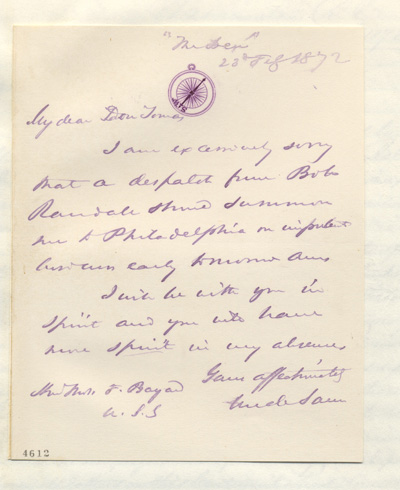 "The Den"
23d Feb 1872
My dear Don Tomas
I am excessively sorry
that a despatch from Bob
Randall should summon
me to Philadelphia on important
business early tomorrow
I will be with you in
spirit and you will have
more spirit in my absence
Yours affectionately
Uncle Sam
Hon Thos. F. Bayard
U.S.S
4612